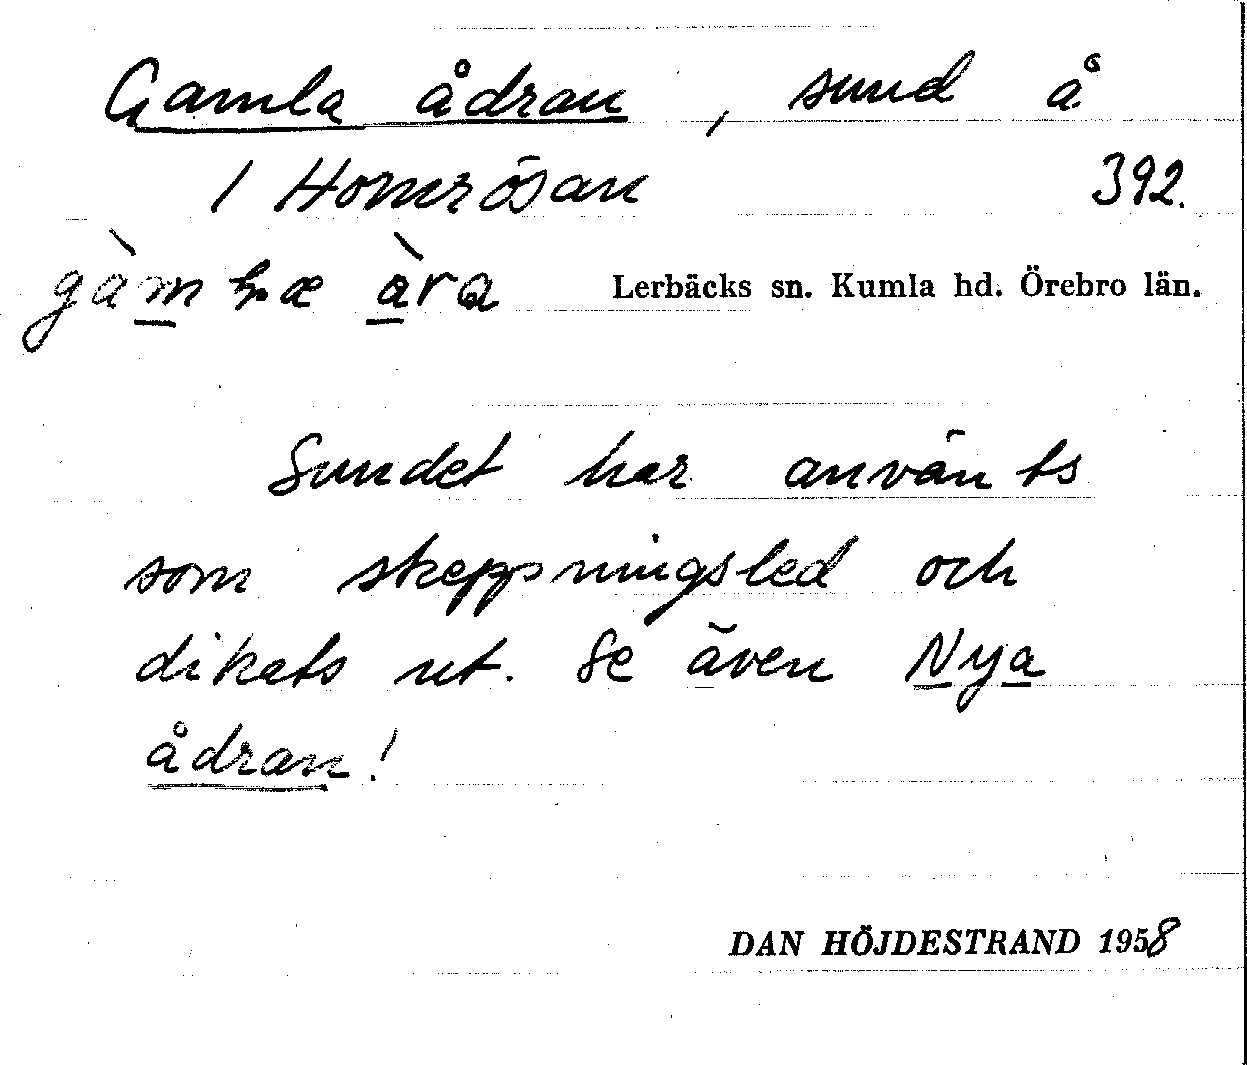 Gamla ådran, sund å
/ Homrösan 392.
Lerbäcks sn. Kumla hd. Örebro län.
Sundet har använts
som skeppningsled och
dikats ut. Se även Nya
ådran!
DAN HÖJDESTRAND 1958